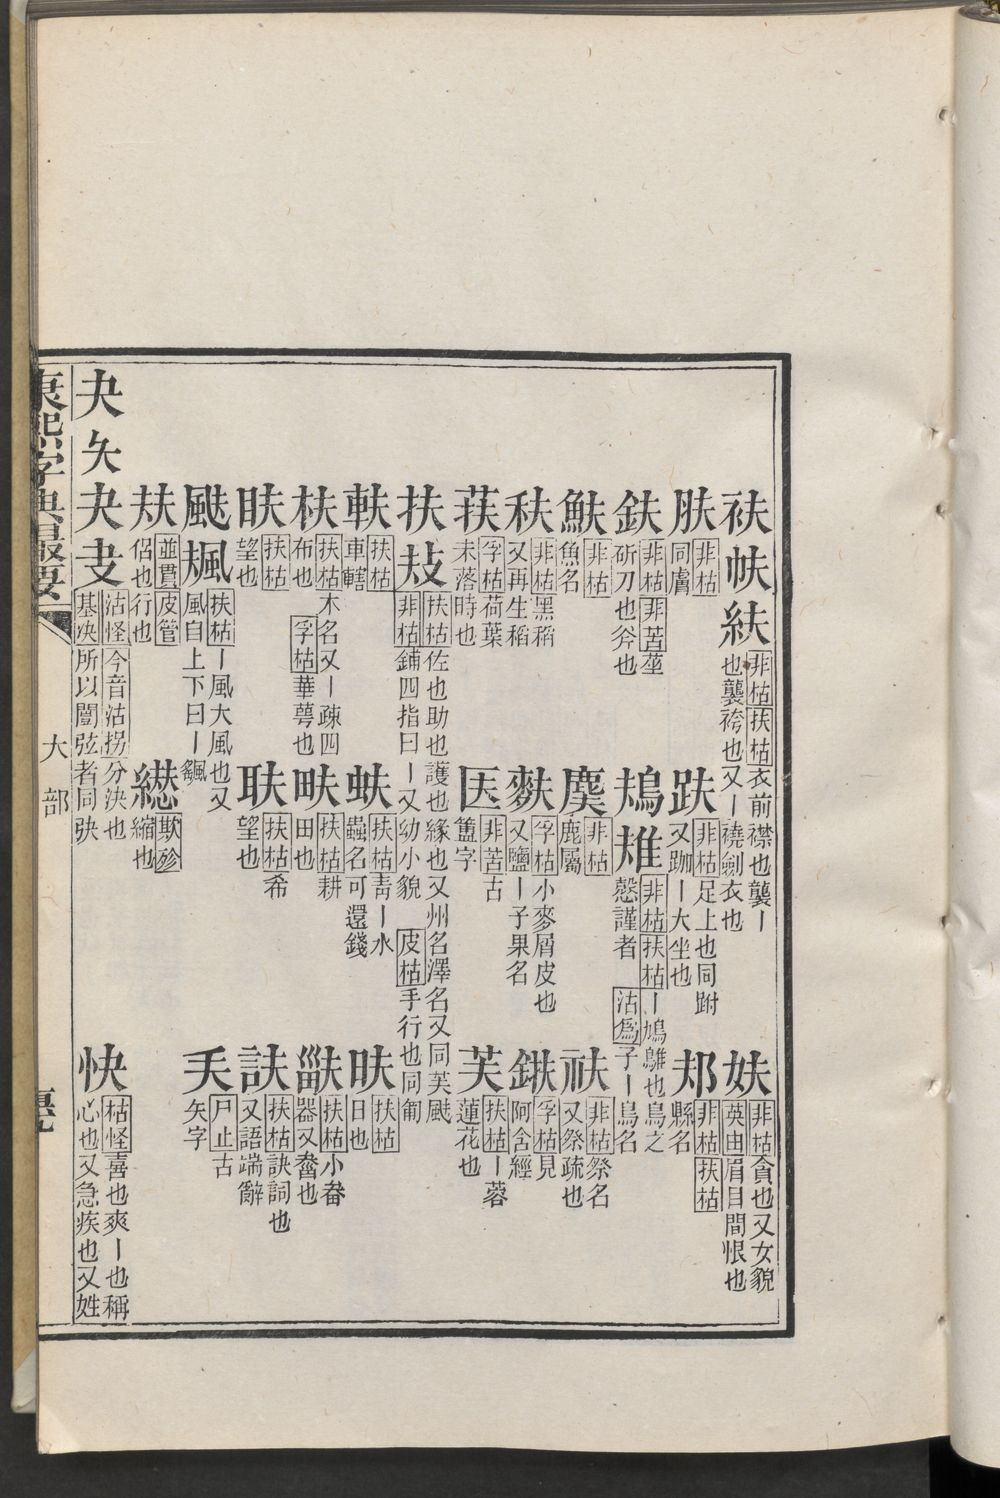 袂帗紩 非枯 扶枯 衣前襟也襲丨也襲袴也又丨襓劍衣也
妋 非枯 貪也又女貌 英由 眉目間恨也
肤 非枯 同膚
趺 非枯 足上也同跗又跏丨大坐也
邞 非枯 扶枯 縣名
鈇 非枯 非苦 莝斫刀也斧也
鳺䧿 非枯 扶枯 丨鳩鵻也鳥之慤謹者 沽爲 子丨鳥名
鮇 非枯 魚名
麌 非枯 鹿屬
袂 非枯 祭名又祭疏也
秩 非枯 黑稻又再生稻
麩 孚枯 小麥屑皮也又鹽丨子果名
鉄 孚枯 見阿含經
荴 孚枯 荷葉未落時也
医 非苦 古簠字
芙 扶枯 丨蓉蓮花也
扶㪇 扶枯 佐也助也護也緣也又州名澤名又同芙颫 非枯 鋪四指曰丨又幼小貌 皮枯 手行也同匍
軑 扶枯 車轄
蚨 扶枯 靑丨水蟲名可還錢
昳 扶枯 日也
枎 扶枯 木名又丨疎四布也 孚枯 華萼也
畉 扶枯 耕田也
扶枯 小畚器又畚也
眣 扶枯 望也
耾 扶枯 希望也
訣 扶枯 訣詞也又語端辭
颫 扶枯 丨風大風也又風自上下曰丨颻
夭 尸止 古矢字
㚘 並貫 皮管 侶也行也
欺殄 縮也
夬 沽怪 今音沽拐 分決也 基决 所以闓弦者同玦
快 枯怪 喜也爽丨也稱心也又急疾也又姓
康熙字典最要
大部